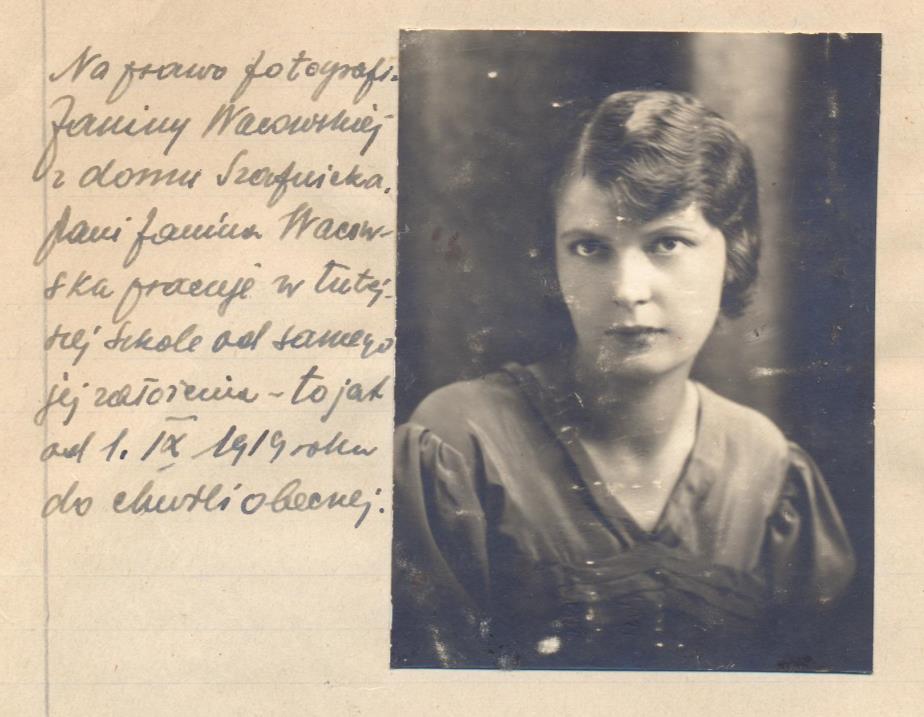 Na prawo fotografi.
Janiny Wacowskiej
z domu Szafnicka.
Pani Janina Wacow-
ska pracuje w tutej-
szej Szkole od samego
jej założenia - to jak
od 1. IX 1919 roku
do chwili obecnej.